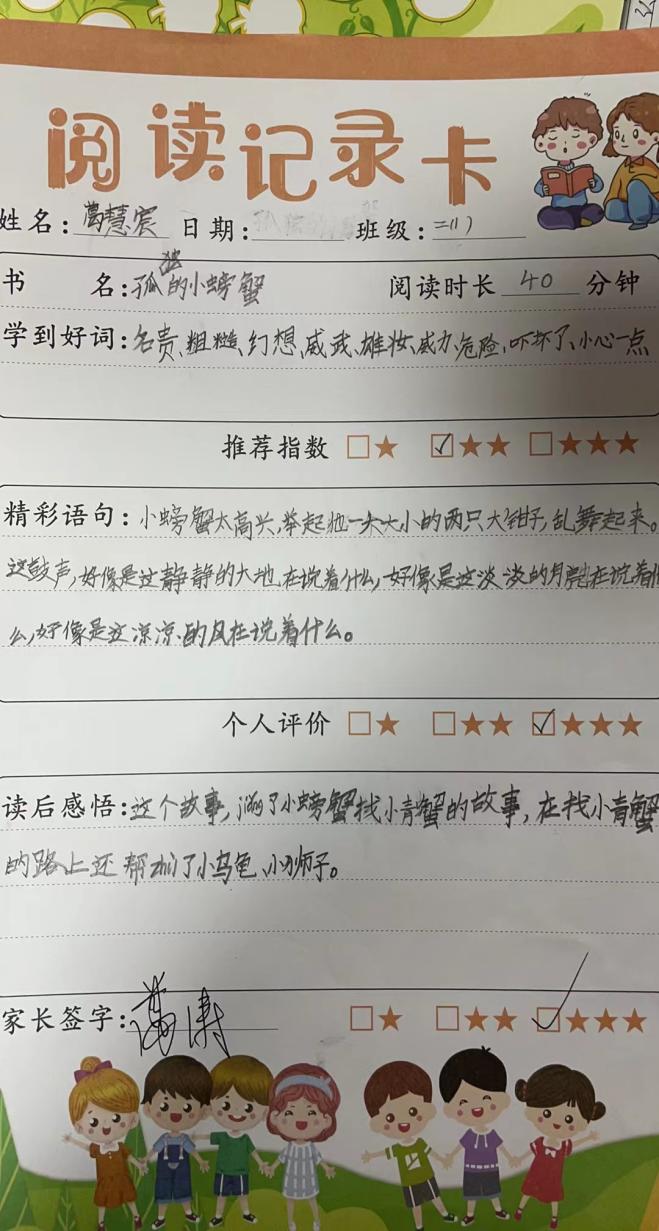 阅读记录卡
姓名：葛慧宾 日期： 班级：二11）
书 名：孤独的小螃蟹 阅读时长 40 分钟
学到好词：名贵、粗糙、幻想、威武、雄妆、威力、危险、吓坏了、小心一点
推荐指数 □★ ☑★★ □★★★
精彩语句：小螃蟹太高兴，举起他一大一小的两只大钳子，乱舞起来。
这鼓声，好像是这静静的大地在说着什么，好像是这淡淡的月亮在说着什
么，好像是这凉凉的风在说着什么。
个人评价 □★ □★★ ☑★★★
读后感悟：这个故事，讲了小螃蟹找小青蟹的故事，在找小青蟹
的路上还帮助了小乌龟、小狮子。
家长签字：葛涛 □★ □★★ ☑★★★